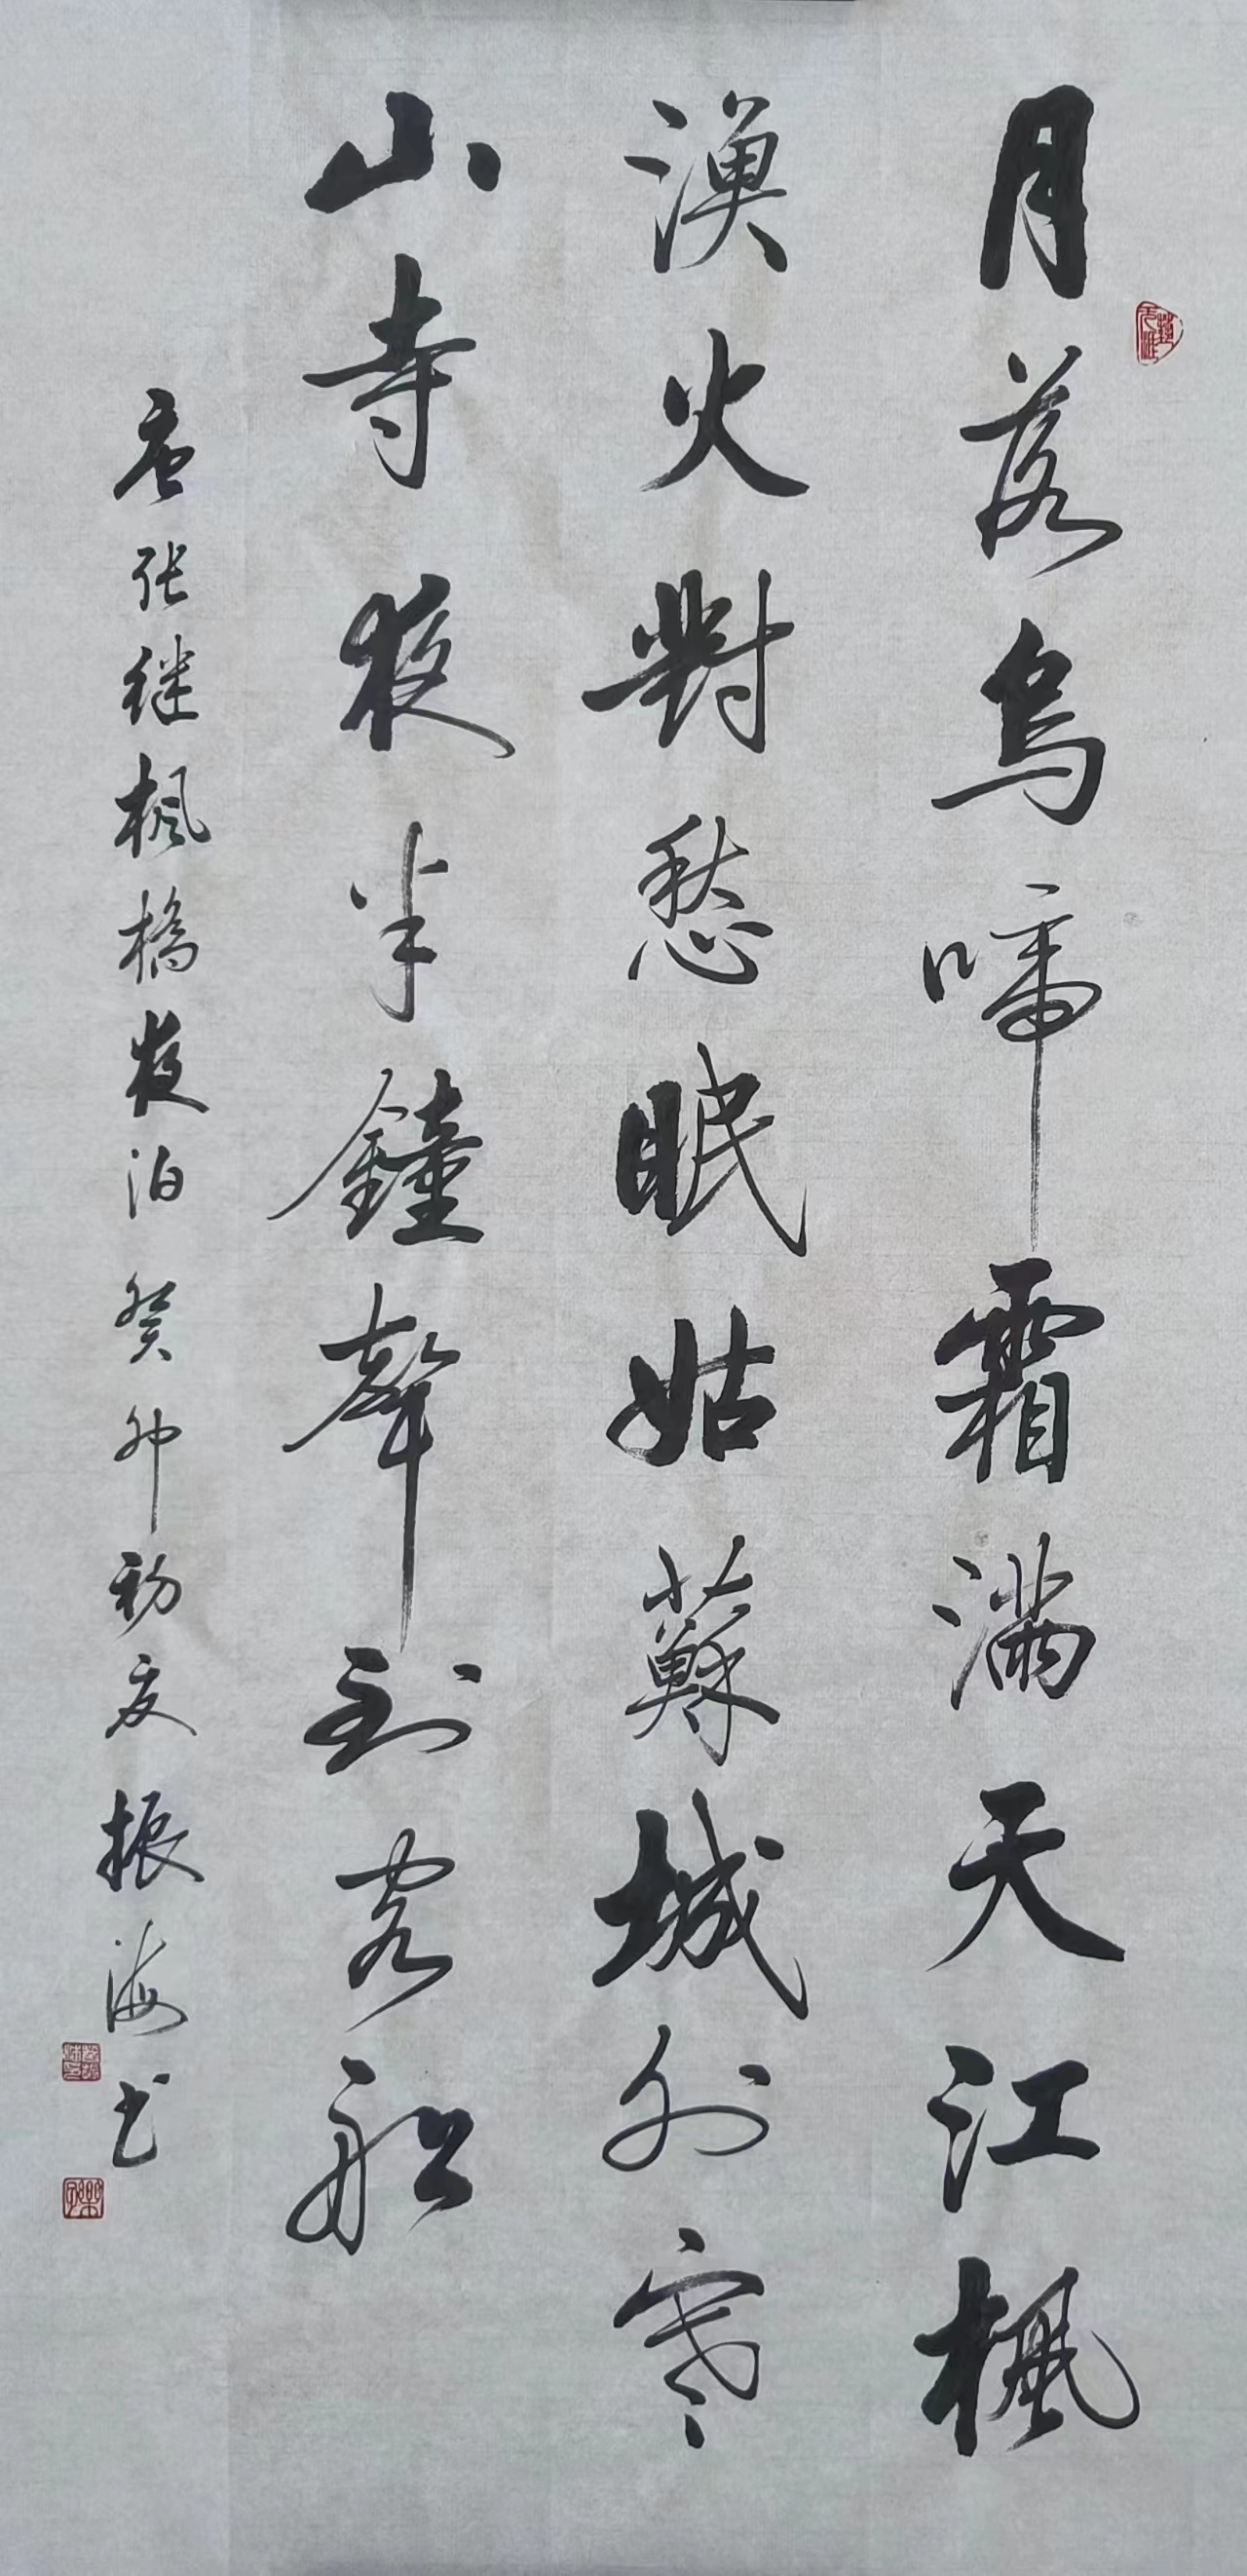 月落烏啼霜满天江楓
渔火對愁眠姑蘇城外寒
山寺夜半鐘聲到客船
唐张继枫橋夜泊癸卯初夏振海书